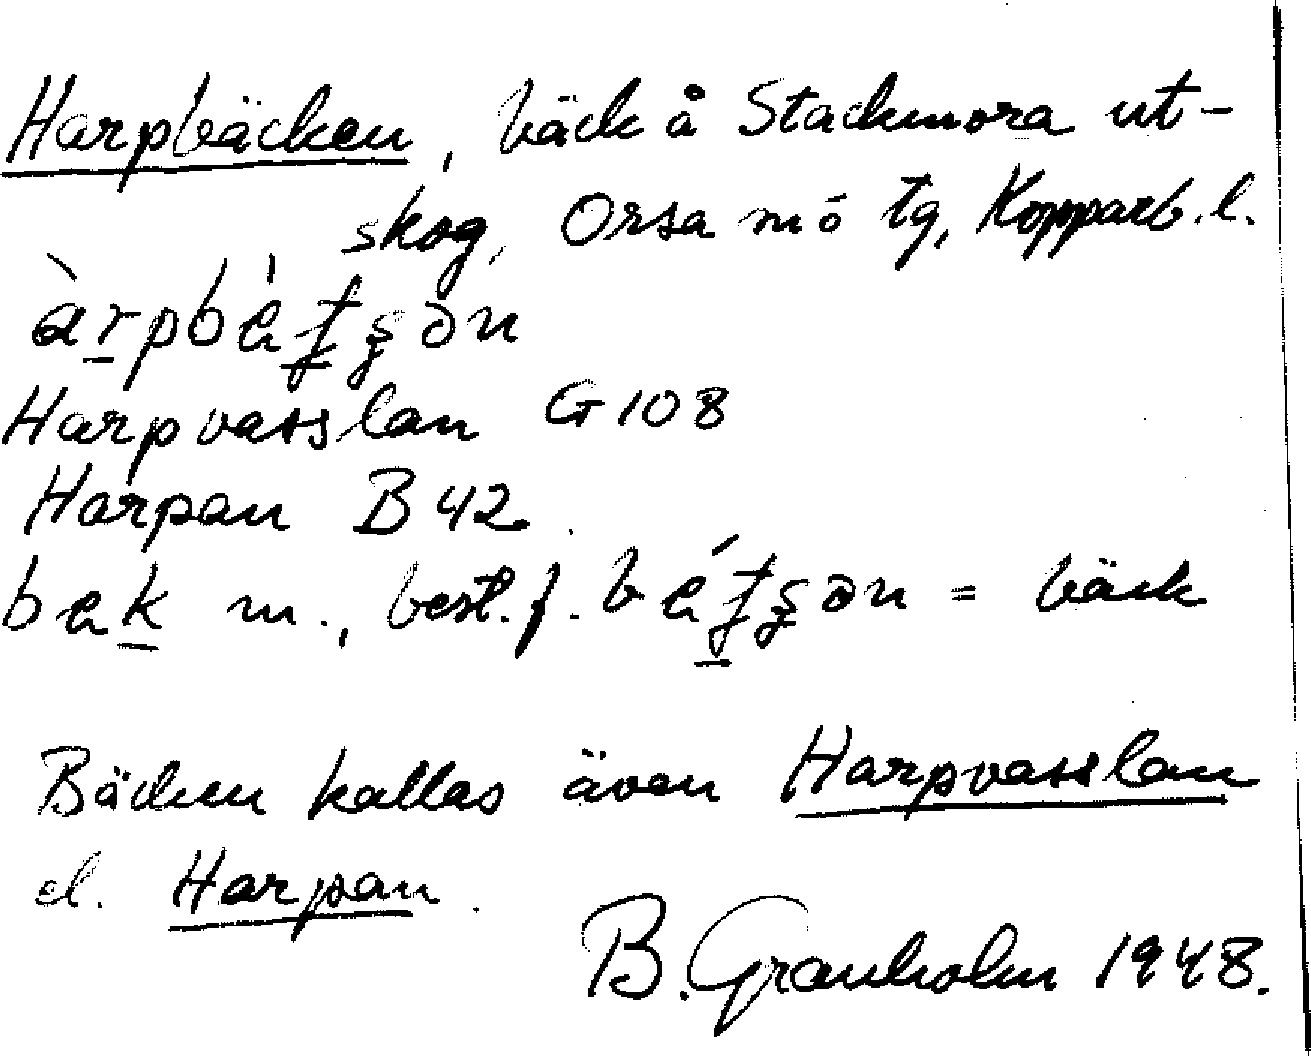 Harpbäcken, bäck å Stackmora ut-
skog, Orsa m ö tg, Kopparb. l.
Harpvasslan G 108
Harpan B 42
m., best. f. = bäck
Bäcken kallas även Harpvasslan
el. Harpan.
B. Granholm 1948.